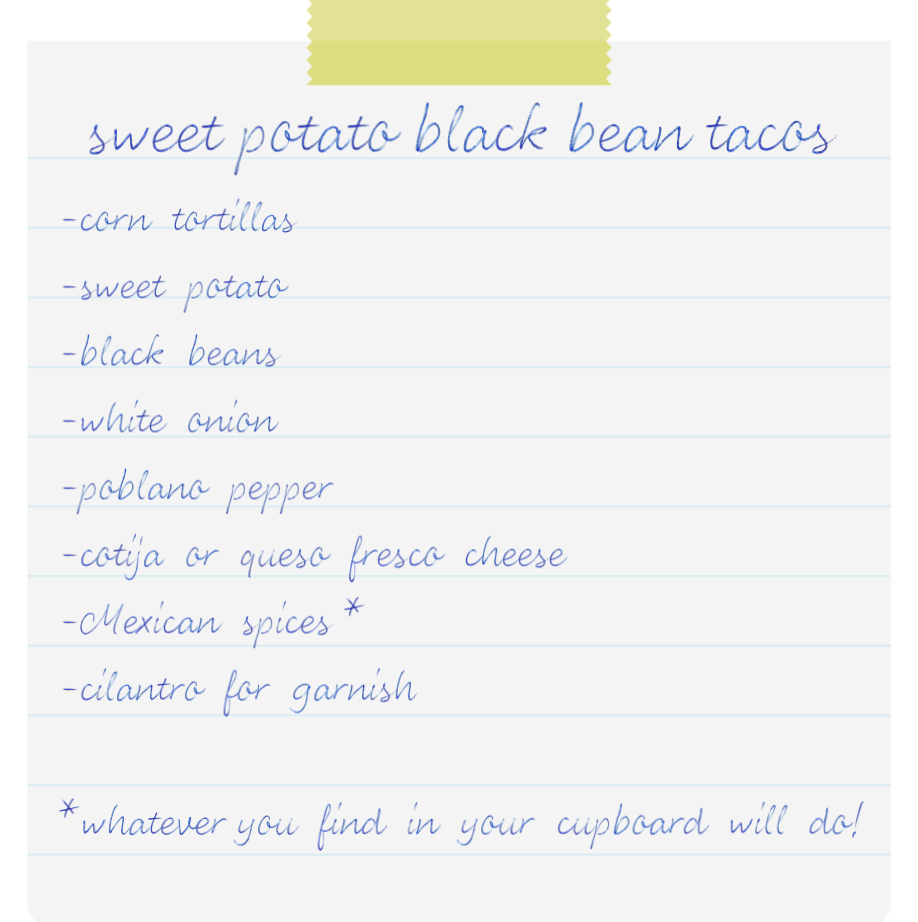 sweet potato black bean tacos
-corn tortillas
-sweet potato
-black beans
-white onion
-poblano pepper
-cotija or queso fresco cheese
-Mexican spices*
-cilantro for garnish
*whatever you find in your cupboard will do!